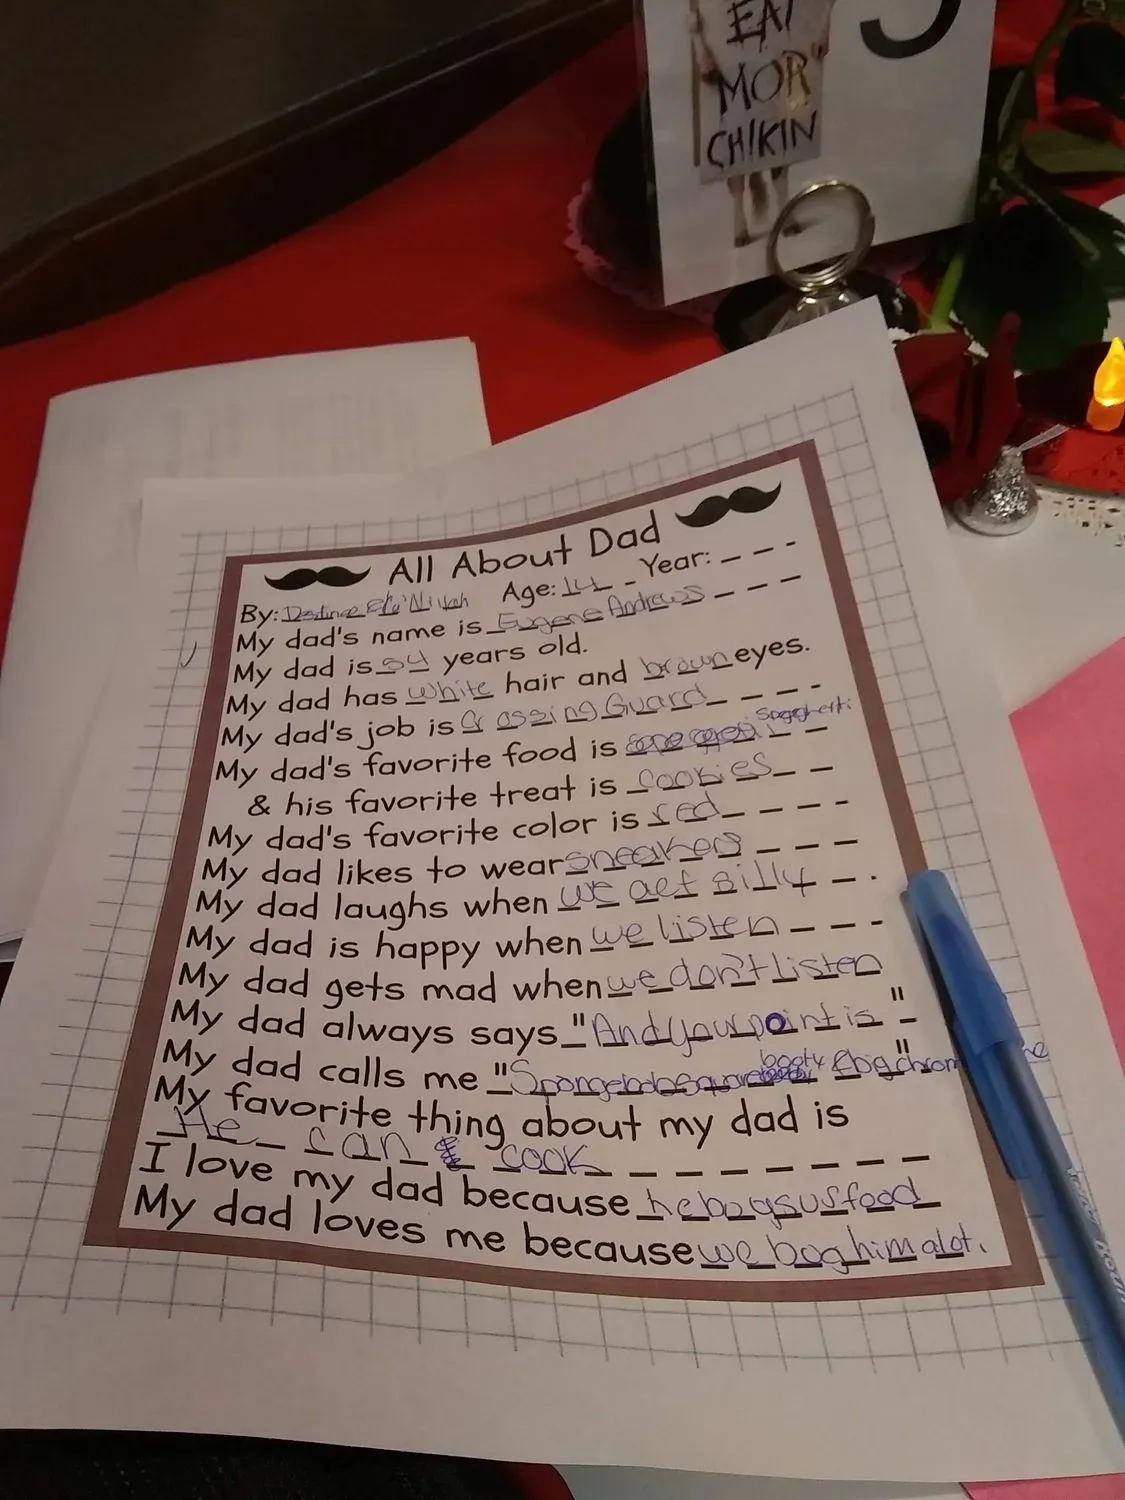 EAT
MOR
CHIKIN
5
All About Dad
By: Age: 14 Year:
My dad's name is Eugene Andrews
My dad is 54 years old.
My dad has white hair and brown eyes.
My dad's job is Crossing Guard
My dad's favorite food is Spaghetti
& his favorite treat is cookies
My dad's favorite color is red
My dad likes to wear sneakers
My dad laughs when we act silly
My dad is happy when we listen
My dad gets mad when we don't listen
My dad always says "And your point is"
My dad calls me "Spongebob square booty & big chrom
My favorite thing about my dad is
He can cook
I love my dad because he bags us food
My dad loves me because we bog him alot.